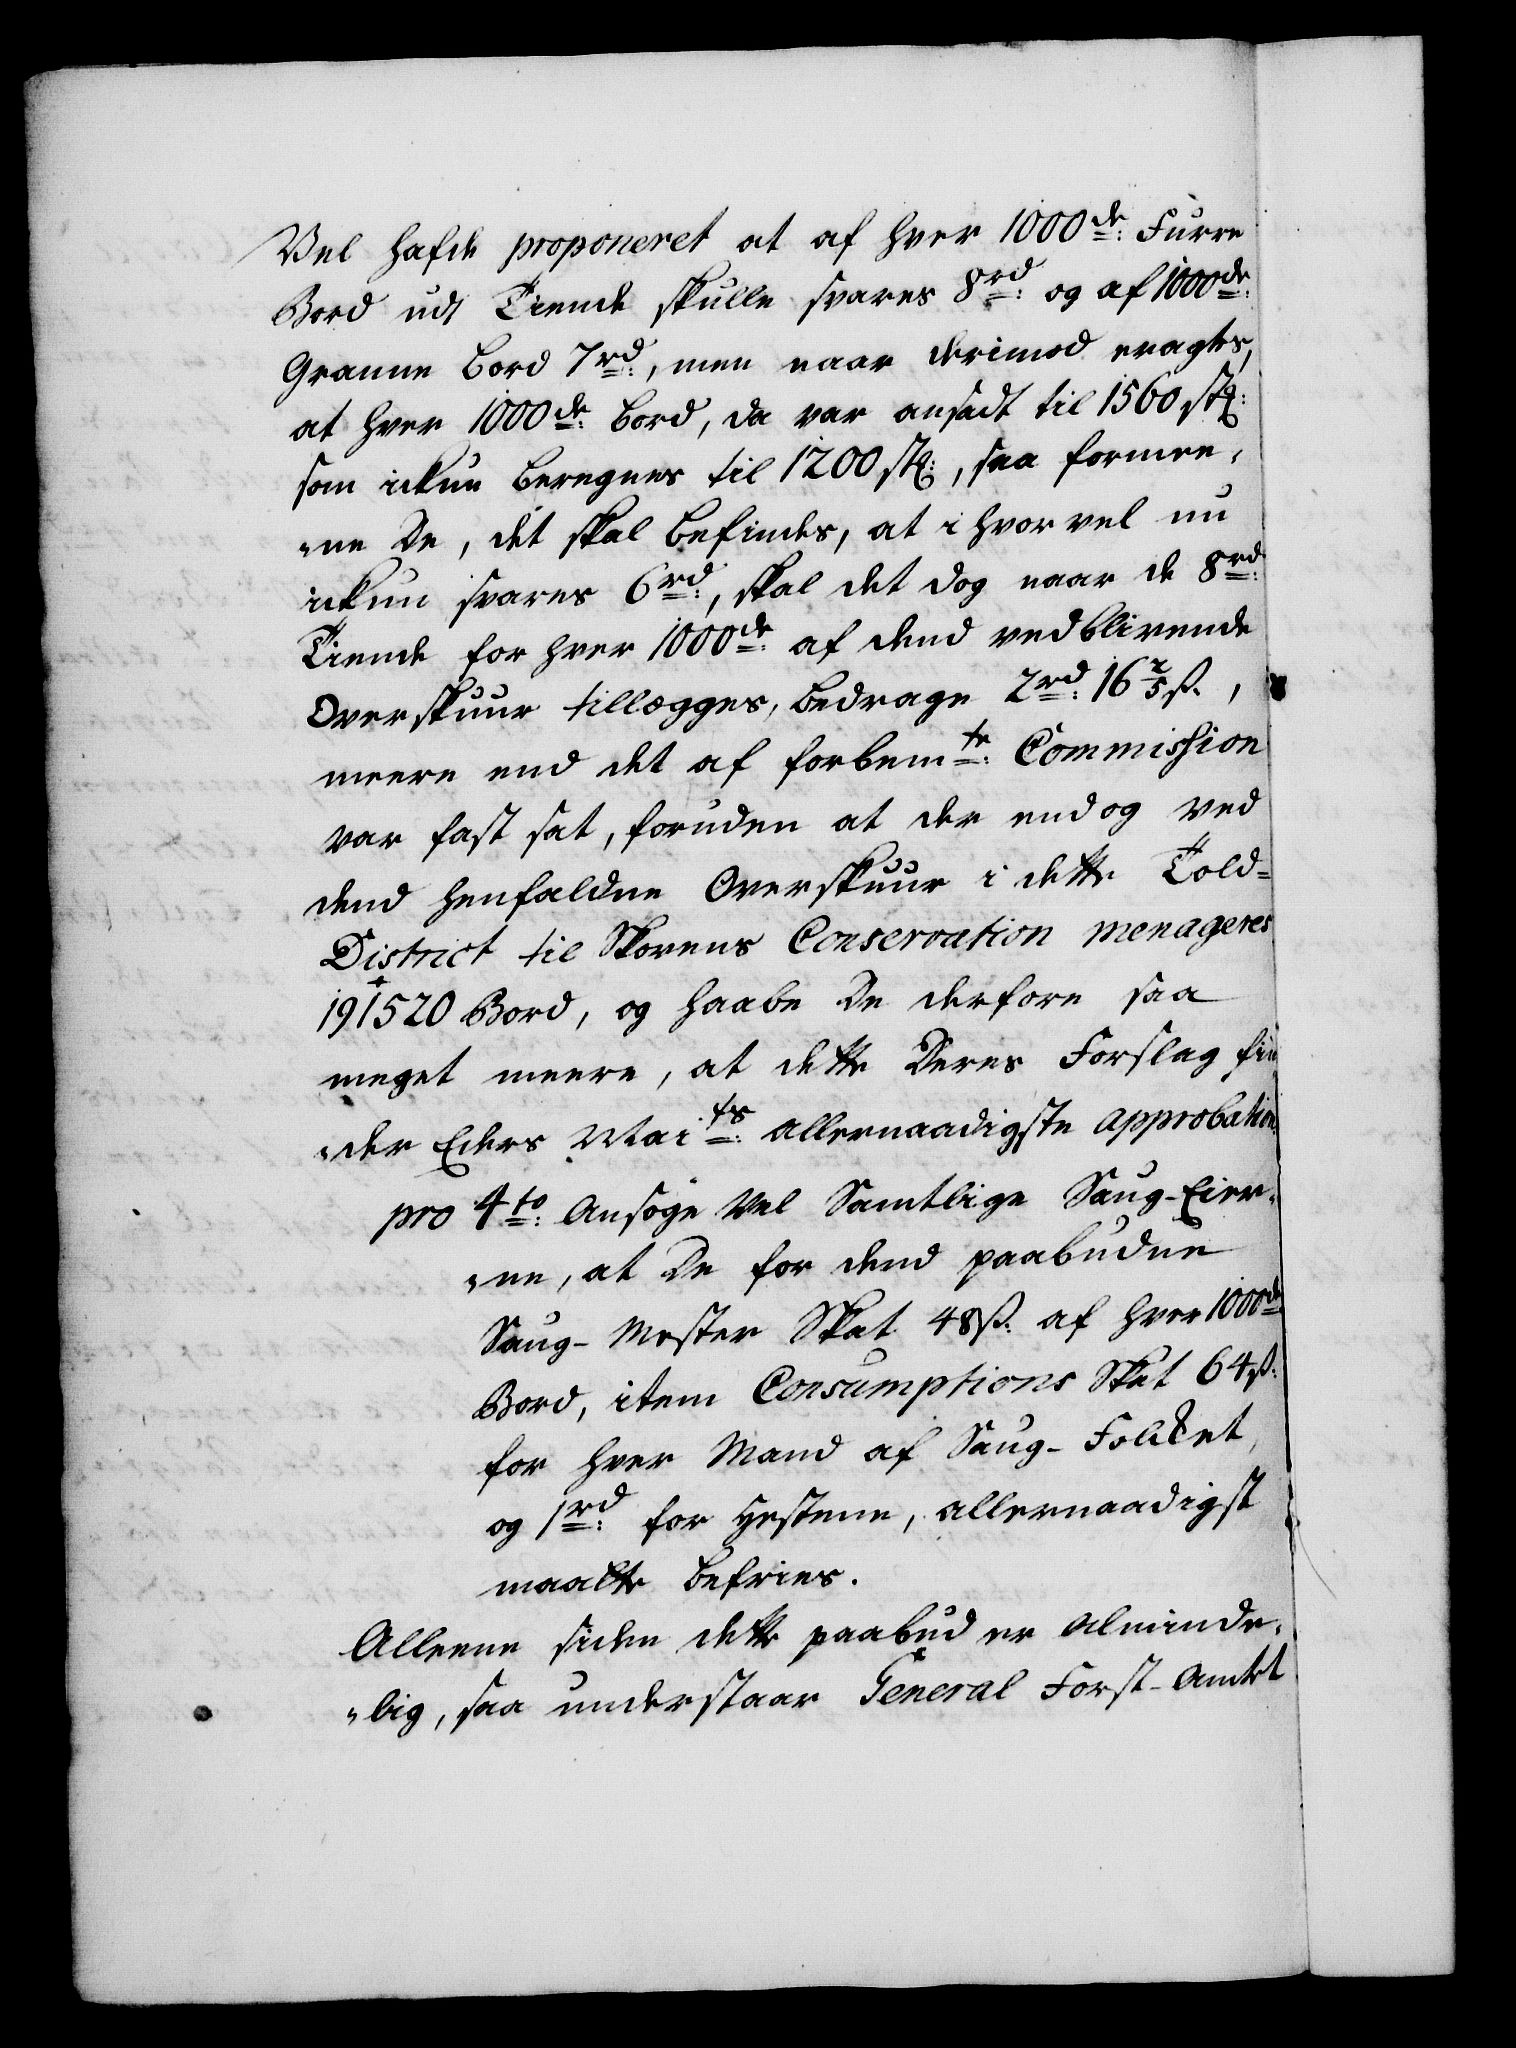 Vel hafde proponeret at af hver 1000de: Furre
Bord udi Tiende skulle svares 8rd: og af 1000de:
Granne bord 7rd:, men naar derimod eragtes,
at hver 1000de: bord, da var ansadt til 1560 stk:
som ickun beregnes til 1200 stk:, saa formee,
„ne De, det skal befindes, at i hvor vel nu
ickun svares 6rd:, skal det dog naar de 8rd:
Tiende for hver 1000de: af dend vedblivende
Overskuur tillægges, bedrage 2rd: 16 2/5 ß.,
meere end det af forbemte: Commission
var fast sat, foruden at der end og ved
dend henfaldne Overskuur i dette Told=
District til Skovens Conservation menageres
191520 Bord, og haabe De derfore saa
meget meere, at dette Deres Forslag fin
„der Eders Maits: allernaadigste approbation.
pro 4to: Ansøge Vel Samtlige Saug-Eier,
„ne, at De for dend paabudne
Saug-Mester Skat 48ß: af hver 1000de:
Bord, item Consumptions Skat 64ß:
for hver Mand af Saug-Folcket,
og 1rd: for Hestene, allernaadigst
maatte befries.
Alleene siden dette paabud er Alminde,
„lig, saa understaar General Forst-Amtet